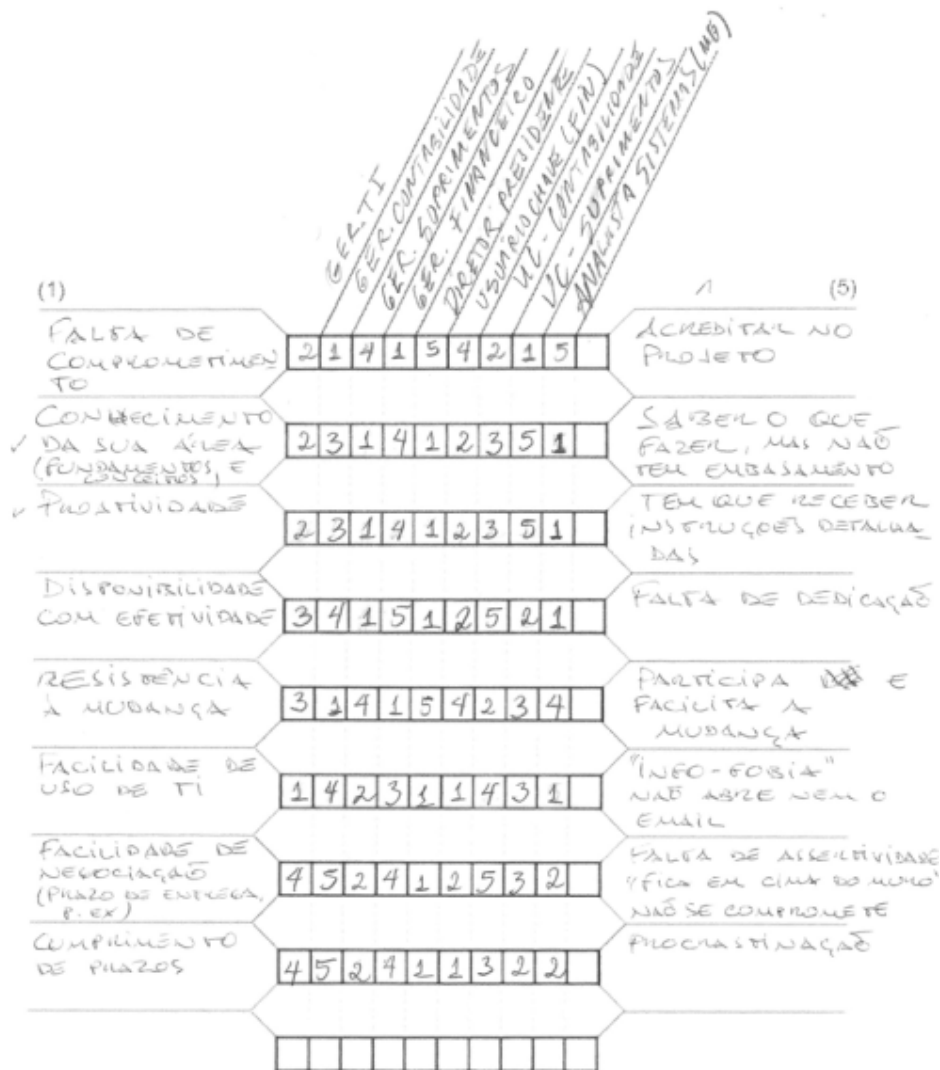 GER. TI
GER. CONTABILIDADE
GER. SUPRIMENTOS
GER. FINANCEIRO
DIRETOR PRESIDENTE
USUÁRIO CHAVE (FIN)
UC - CONTABILIDADE
UC - SUPRIMENTOS
ANALISTA SISTEMAS (MG)
(1) (5)
FALTA DE
COMPROMETIMEN
TO
2 1 4 1 5 4 2 1 5
ACREDITAR NO
PROJETO
CONHECIMENTO
✓ DA SUA ÁREA
(FUNDAMENTOS, E
CONCEITOS)
2 3 1 4 1 2 3 5 1
SABER O QUE
FAZER, MAS NÃO
TEM EMBASAMENTO
✓ PROATIVIDADE
2 3 1 4 1 2 3 5 1
TEM QUE RECEBER
INSTRUÇÕES DETALHA_
DAS
DISPONIBILIDADE
COM EFETIVIDADE
3 4 1 5 1 2 5 2 1
FALTA DE DEDICAÇÃO
RESISTÊNCIA
À MUDANÇA
3 1 4 1 5 4 2 3 4
PARTICIPA E
FACILITA A
MUDANÇA
FACILIDADE DE
USO DE TI
1 4 2 3 1 1 4 3 1
"INFO-FOBIA"
NÃO ABRE NEM O
EMAIL
FACILIDADE DE
NEGOCIAÇÃO
(PRAZO DE ENTREGA,
P. EX)
4 5 2 4 1 2 5 3 2
FALTA DE ASSERTIVIDADE
"FICA EM CIMA DO MURO"
NÃO SE COMPROMETE
CUMPRIMENTO
DE PRAZOS
4 5 2 4 1 1 3 2 2
PROCRASTINAÇÃO